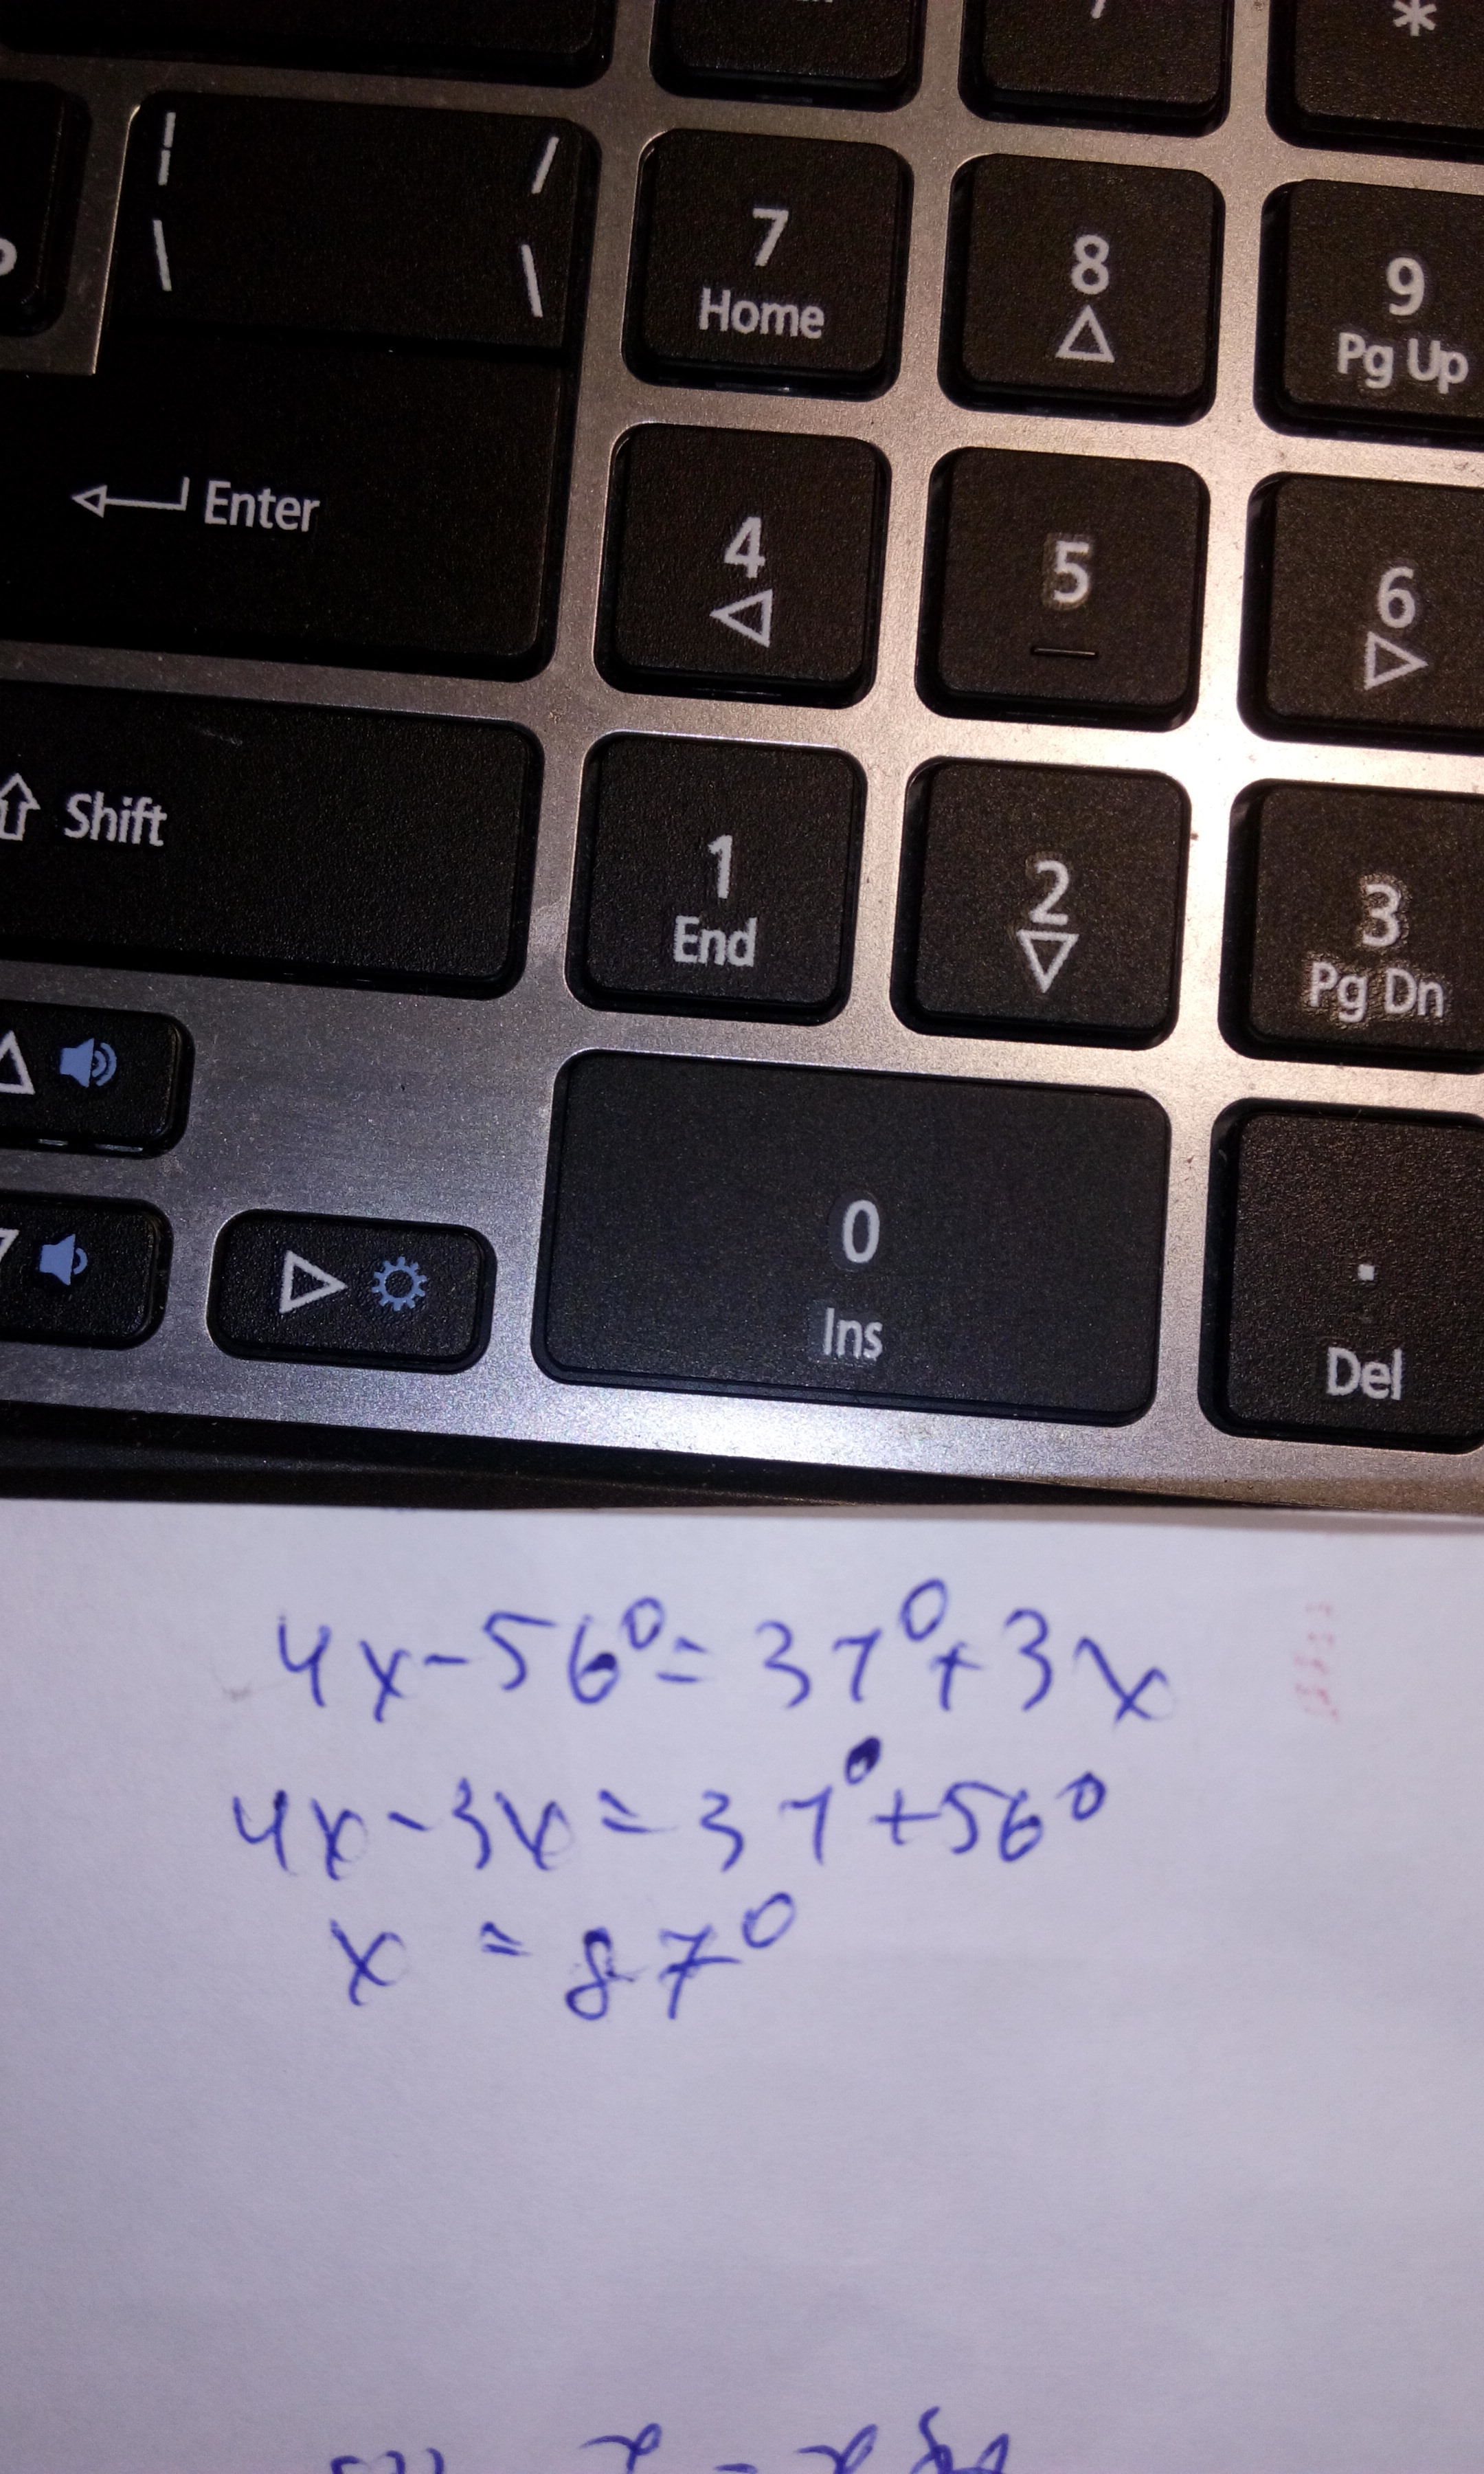 *
7 8 9
Home Pg Up
Enter
4 5 6
Shift
1 2 3
End Pg Dn
0 .
Ins Del
4x-56⁰=37⁰+3x
4x-3x=37⁰+56⁰
x = 87⁰